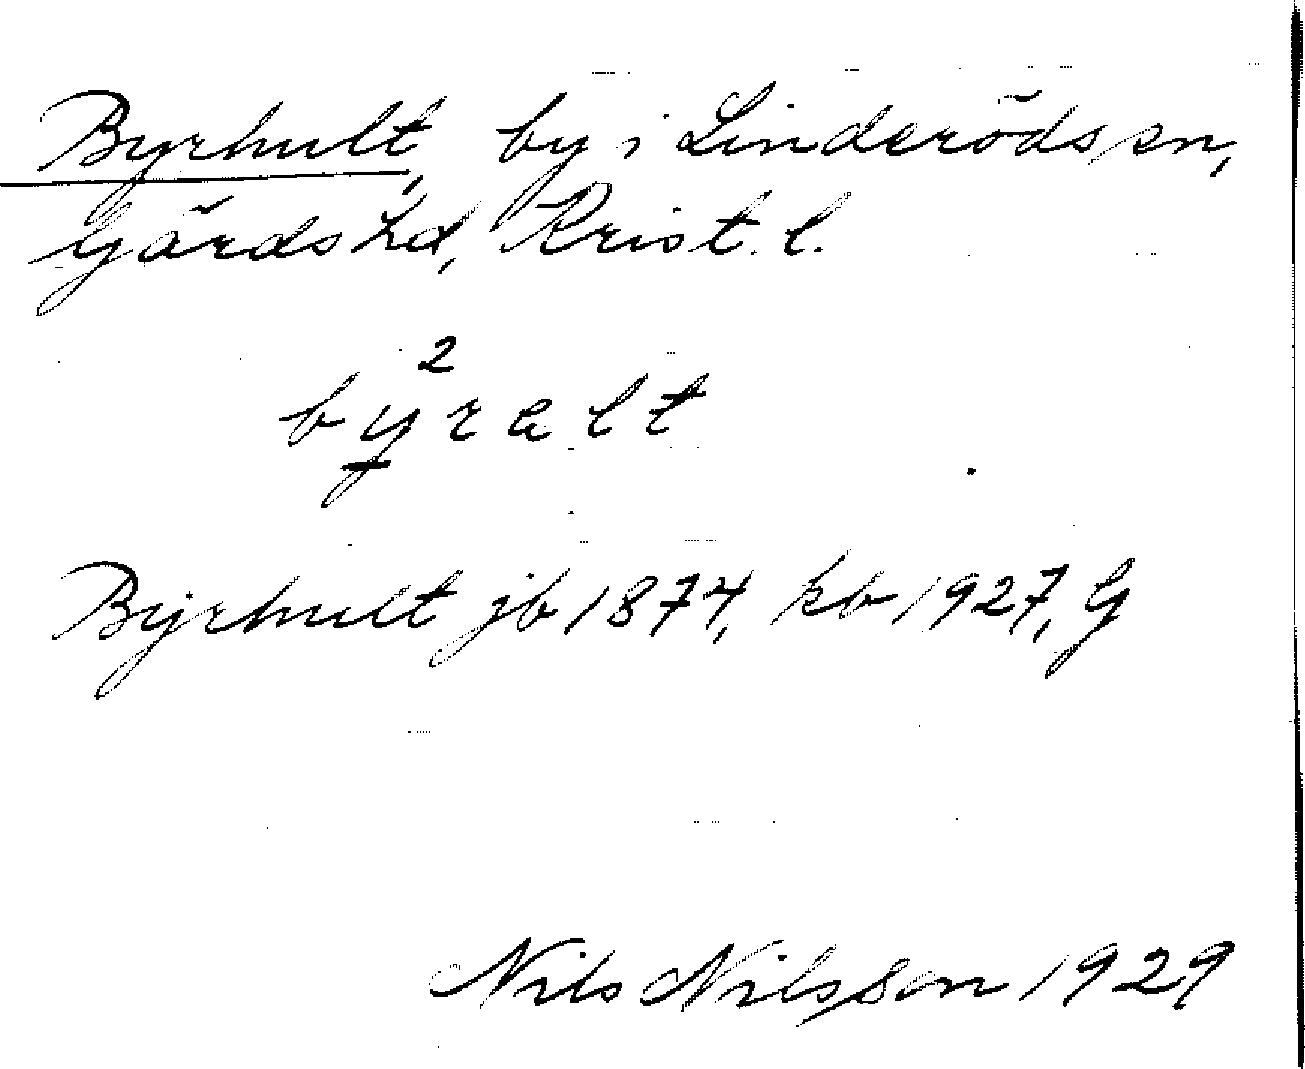 Byrhult, by i Linderöds sn,
Gärds hd, Krist. l.
2
byralt
Byrhult jb 1874, kb 1927, G
Nils Nilsson 1929